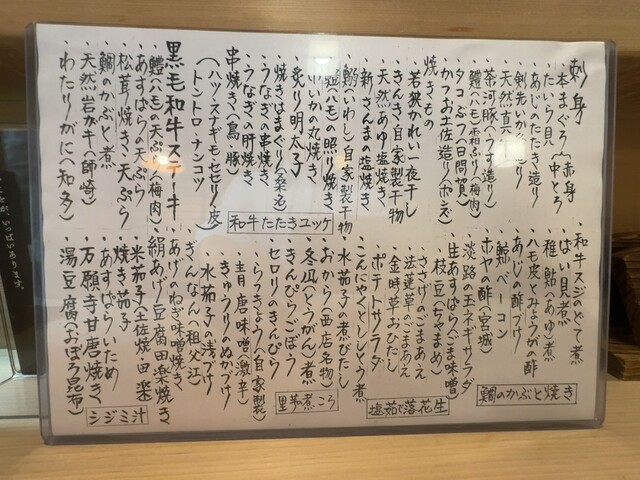 刺身
・本まぐろ{赤身 中とろ
・たいら貝
・あじのたたき造り
・剣先いか造り
・天然真
・茶河豚(うす造り)
・鱧(ハモ)霜ふり(梅肉)
・タコぶつ(日間賀)
・かつお土佐造り(ポン酢)
焼きもの
・若狭かれい一夜干し
・きんき自家製干物
・天然あゆ塩焼き
・新さんまの塩焼き
・鰯(いわし)自家製干物
・鱧(ハモ)の照り焼き
・いかの丸焼き
・炙り明太子
・焼きはまぐり(桑名)
・うなぎの串焼き
・うなぎの肝焼き
・串焼き(鳥、豚)
(ハツ・スナギモ・セセリ・皮)
(トントロ・ナンコツ)
和牛たたきユッケ
黒毛和牛ステーキ
・鱧(ハモ)の天ぷら(梅肉)
・あすぱらの天ぷら
・松茸焼き、天ぷら
・鯛のかぶと煮
・天然岩がキ(師崎)
・わたりがに(知多)
・和牛スジのどて煮
・ばい貝煮
・稚鮎(あゆ)煮
・ハモ皮とみょうがの酢
・あじの酢づけ
・鯨ベーコン
・ホヤの酢(宮城)
・淡路の玉ネギサラダ
・生あすぱらごま味噌
・枝豆(ちゃまめ)
・ささげのごまあえ
・法蓮草のごまあえ
・金時草おひたし
・ポテトサラダ
・こんにゃくとししとう煮
・水茄子の煮びたし
・おから(西店名物)
・冬瓜(とうがん)煮
・きんぴらごぼう
・セロリのきんぴら
・らっきょう(自家製)
・青唐味噌(激辛)
・きゅうりのぬかづけ
・水茄子の浅づけ
・ぎんなん(祖父江)
・あげのねぎ味噌焼き
・絹あげ/豆腐田楽焼き
・米茄子(土佐焼・田楽
・焼き茄子
・あすぱらいため
・万願寺甘唐焼き
・湯豆腐(おぼろ昆布)
鯛のかぶと焼き
塩茹で落花生
里芋煮ころ
シジミ汁
が、いっぱいあります。